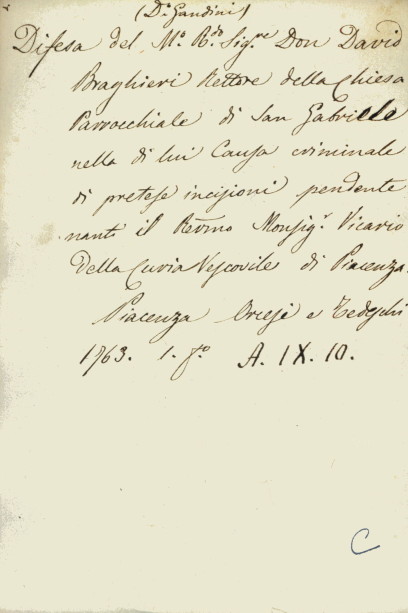 (Dr. Gandini)
Difesa del Mo. Rdo. Sig.re Don David
Braghieri Rettore della Chiesa
Parrocchiale di San Gabriele
nella di lui Causa criminale
di pretese incisioni pendente
nanti il Revmo Monsigr. Vicario
della Curia Vescovile di Piacenza.
Piacenza Orcesi e Tedeschi
1763. 1. f.o A. IX. 10.
C